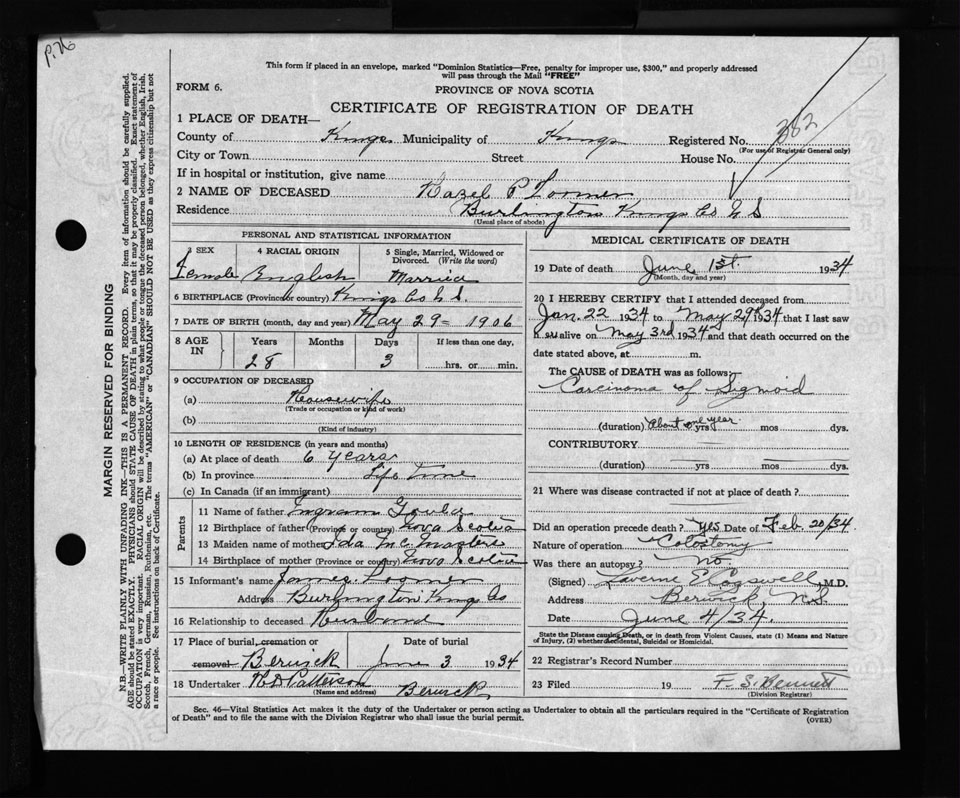 P.76
This form if placed in an envelope, marked "Dominion Statistics—Free, penalty for improper use, $300," and properly addressed
will pass through the Mail "FREE"
FORM 6.
PROVINCE OF NOVA SCOTIA
CERTIFICATE OF REGISTRATION OF DEATH
1 PLACE OF DEATH—
County of Kings Municipality of Kings Registered No. 382
(For use of Registrar General only)
City or Town Street House No.
If in hospital or institution, give name
2 NAME OF DECEASED Hazel P Loomer
Residence Burlington Kings Co N S
(Usual place of abode)
PERSONAL AND STATISTICAL INFORMATION
3 SEX 4 RACIAL ORIGIN 5 Single, Married, Widowed or Divorced. (Write the word)
Female English Married
6 BIRTHPLACE (Province or country) Kings Co N.S.
7 DATE OF BIRTH (month, day and year) May 29 = 1906
8 AGE IN Years Months Days If less than one day,
28 3 hrs. or min.
9 OCCUPATION OF DECEASED
(a) Housewife
(Trade or occupation or kind of work)
(b)
(Kind of industry)
10 LENGTH OF RESIDENCE (in years and months)
(a) At place of death 6 years
(b) In province Life Time
(c) In Canada (if an immigrant)
Parents
11 Name of father Ingram
12 Birthplace of father (Province or country) Nova Scotia
13 Maiden name of mother Ida Mc Masters
14 Birthplace of mother (Province or country) Nova Scotia
15 Informant's name James Loomer
Address Burlington Kings Co
16 Relationship to deceased Husband
17 Place of burial, cremation or removal Berwick Date of burial June 3 1934
18 Undertaker Patterson Berwick
(Name and address)
MEDICAL CERTIFICATE OF DEATH
19 Date of death June 1st. 1934
(Month, day and year)
20 I HEREBY CERTIFY that I attended deceased from
Jan. 22 1934 to May 29th 1934 that I last saw
h er alive on May 3rd 1934 and that death occurred on the
date stated above, at m.
The CAUSE of DEATH was as follows:
Carcinoma of Sigmoid
(duration) About one year yrs mos dys.
CONTRIBUTORY
(duration) yrs mos dys.
21 Where was disease contracted if not at place of death?
Did an operation precede death? Yes Date of Feb. 20/34.
Nature of operation Colostomy
Was there an autopsy? No.
(Signed) Laverne E Cogswell, M.D.
Address Berwick, N.S.
Date June 4/34.
State the Disease causing Death, or in death from Violent Causes, state (1) Means and Nature
of Injury, (2) whether Accidental, Suicidal or Homicidal.
22 Registrar's Record Number
23 Filed 19 F. S. Bennett
(Division Registrar)
Sec. 46—Vital Statistics Act makes it the duty of the Undertaker or person acting as Undertaker to obtain all the particulars required in the "Certificate of Registration
of Death" and to file the same with the Division Registrar who shall issue the burial permit.
(OVER)
MARGIN RESERVED FOR BINDING
N.B.—WRITE PLAINLY WITH UNFADING INK—THIS IS A PERMANENT RECORD. Every item of information should be carefully supplied.
AGE should be stated EXACTLY. PHYSICIANS should STATE CAUSE OF DEATH in plain terms, so that it may be properly classified. Exact statement of
OCCUPATION is very important. RACIAL ORIGIN will be described by stating to what people or tongue the deceased person belonged, whether English, Irish,
Scotch, French, German, Russian, Ruthenian, etc. The terms "AMERICAN" or "CANADIAN" SHOULD NOT BE USED as they express citizenship but not
a race or people. See instructions on back of Certificate.